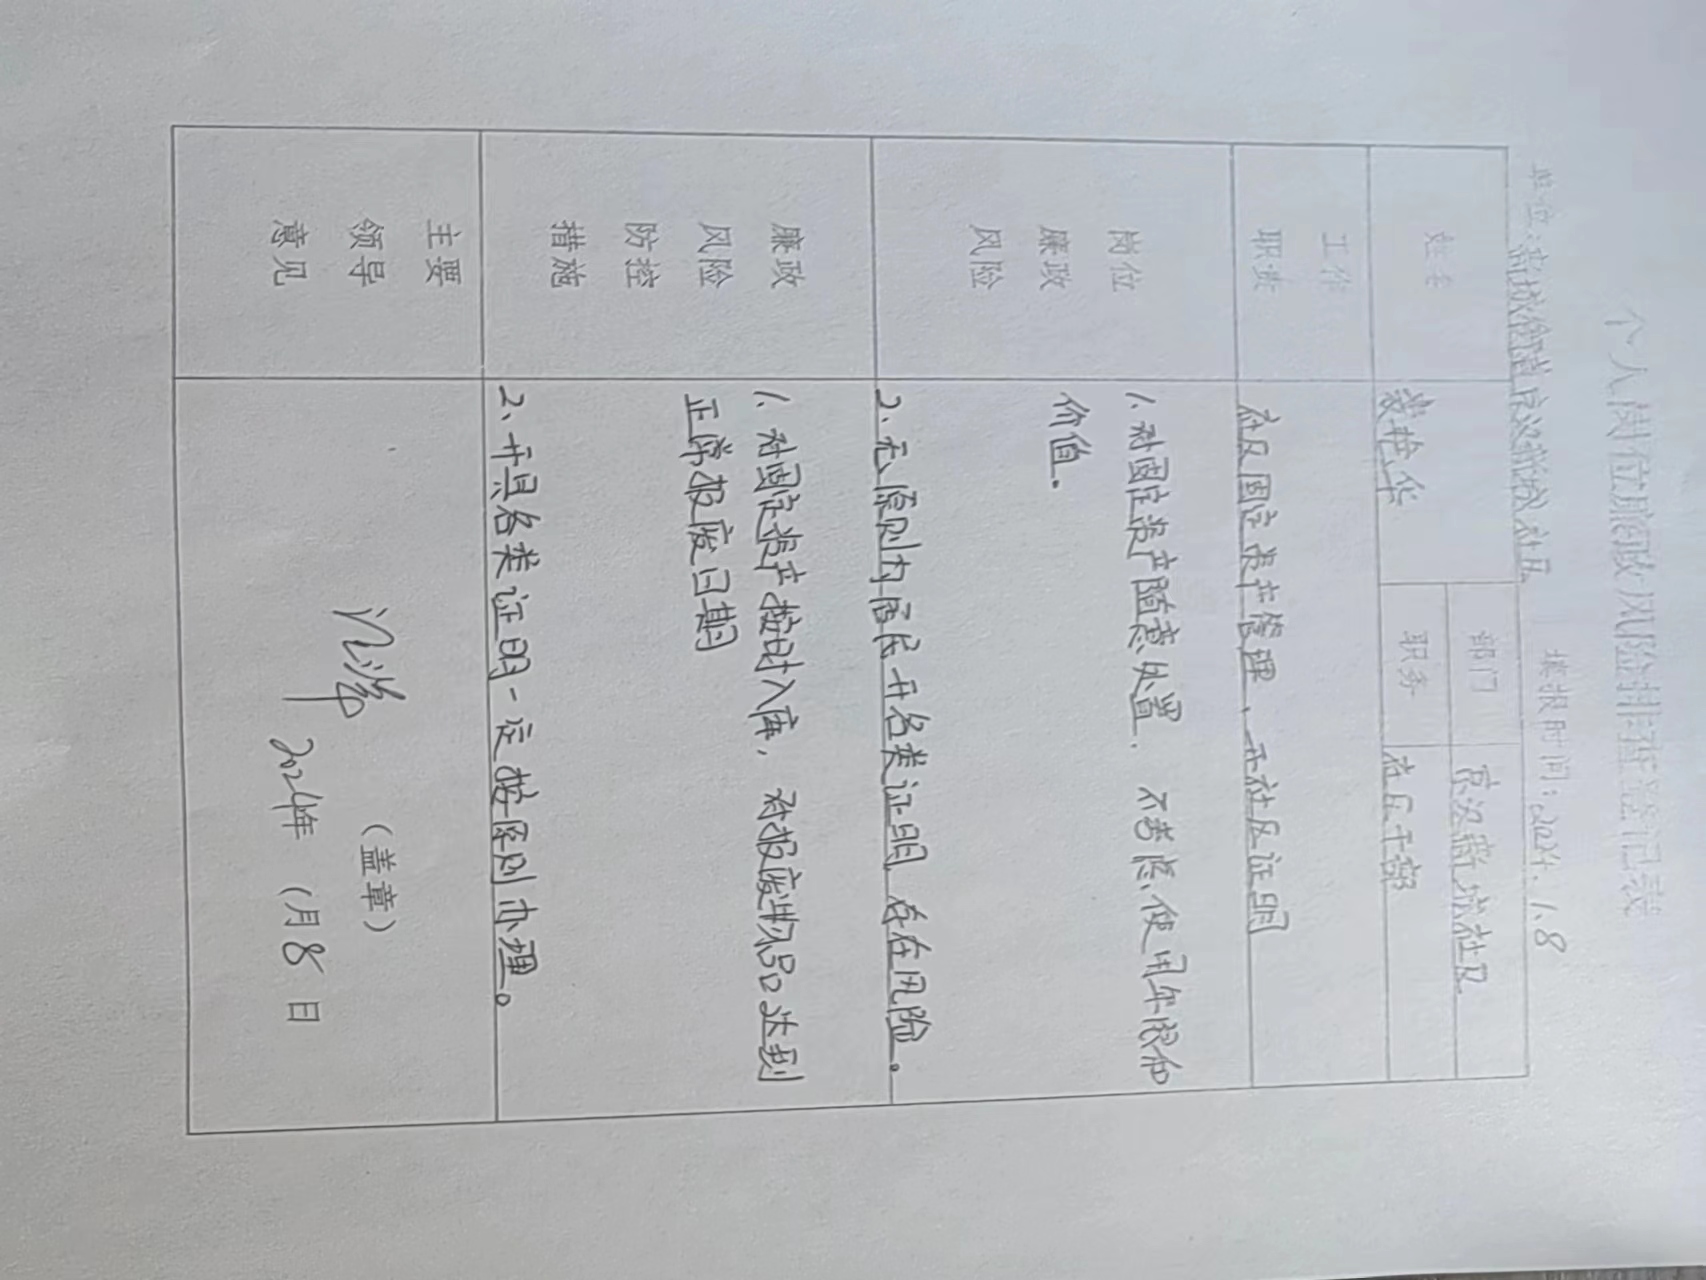 个人岗位廉政风险排查登记表
单位:高城街道京汉新城社区 填报时间:2024.1.8
姓名 艳华 部门 京汉新城社区
职务 社区干部
工作职责 社区固定资产管理、开社区证明
岗位廉政风险
1、对固定资产随意处置、不考虑使用年限和
价值.
2、无原则为居民开各类证明,存在风险。
廉政风险防控措施
1、对固定资产按时入库,对报废物品达到
正常报废日期
2、开具各类证明一定按原则办理。
主要领导意见
(盖章)
2024年 1月8日